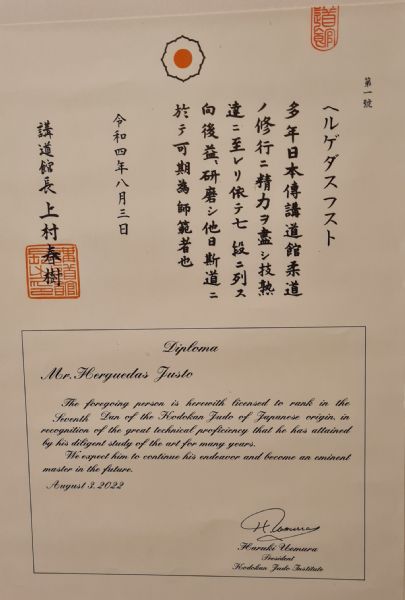 道館
第一號
ヘルゲダスフスト
多年日本傳講道館柔道
ノ修行ニ精力ヲ盡シ技熟
達ニ至レリ依テ七段ニ列ス
向後益〻研磨シ他日斯道ニ
於テ可期為師範者也
令和四年八月三日
講道館長 上村春樹
Diploma
Mr. Herguedas Justo
The foregoing person is herewith licensed to rank in the
Seventh Dan of the Kodokan Judo of Japanese origin, in
recognition of the great technical proficiency that he has attained
by his diligent study of the art for many years.
We expect him to continue his endeavor and become an eminent
master in the future.
August 3, 2022
H. Uemura
Haruki Uemura
President
Kodokan Judo Institute